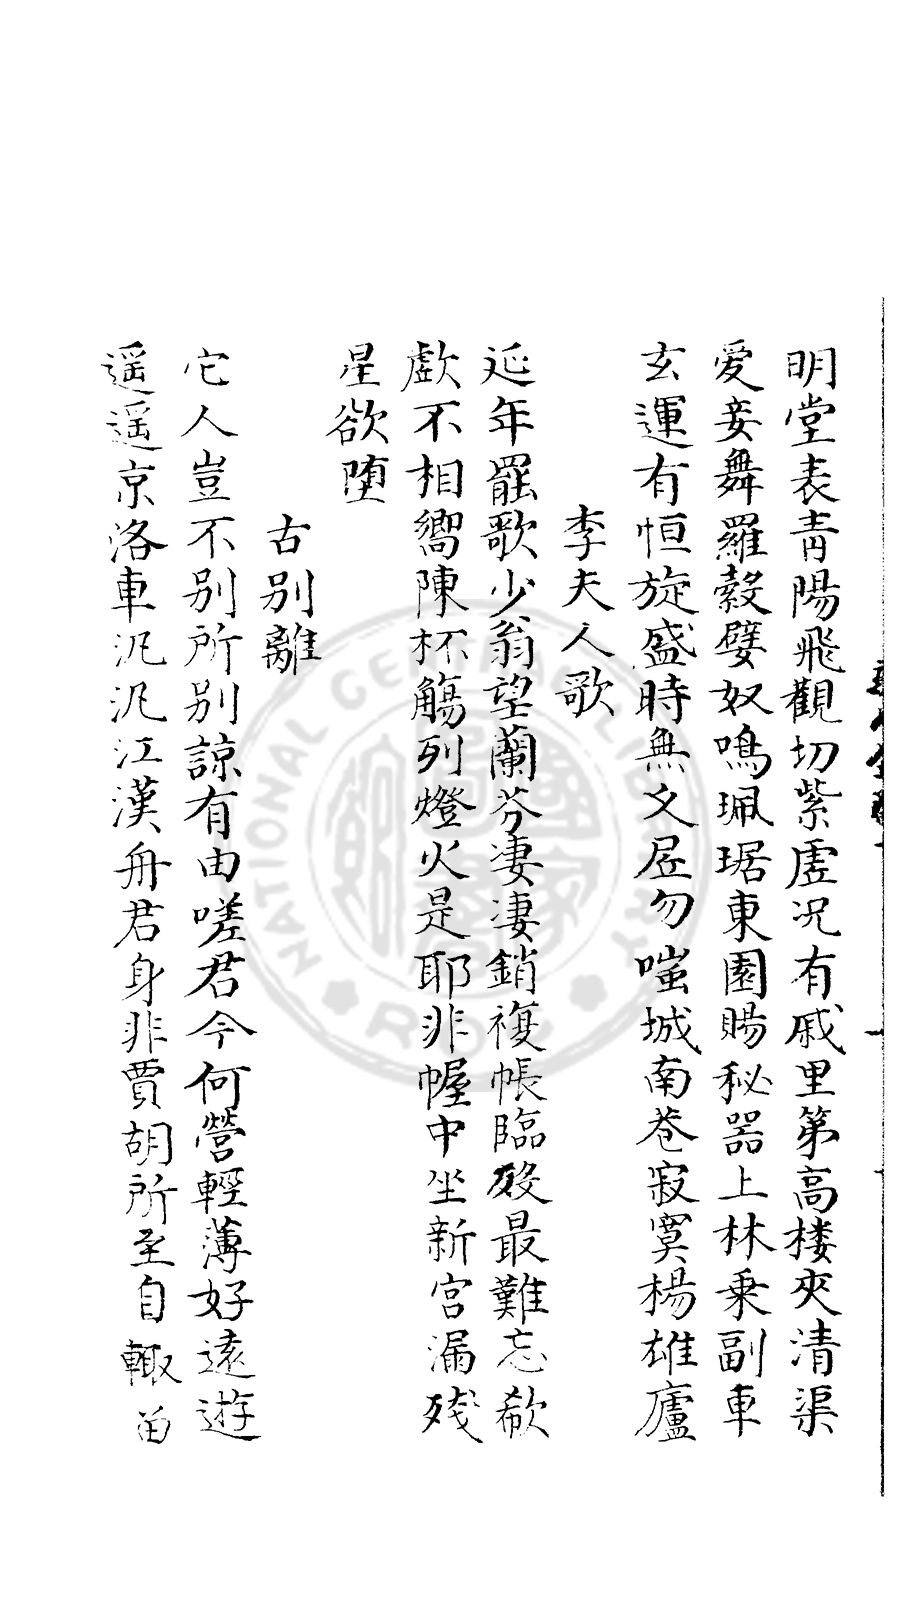 明堂表青陽飛觀切紫虛况有戚里第高楼夾清渠
愛妾舞羅縠嬖奴鳴珮琚東園賜秘器上林乗副車
玄運有恒旋盛時無久居勿嗤城南巷寂寞楊雄廬
李夫人歌
延年罷歌少翁望蘭芬凄凄銷複帳臨歿最難忘欷
歔不相嚮陳杯觴列燈火是耶非幄中坐新宮漏残
星欲堕
古别離
它人豈不别所别諒有由嗟君今何營輕薄好遠遊
遥遥京洛車汎汎江漢舟君身非賈胡所至自輙留
NATIONAL CENTRAL LIBRARY
R.O.C.